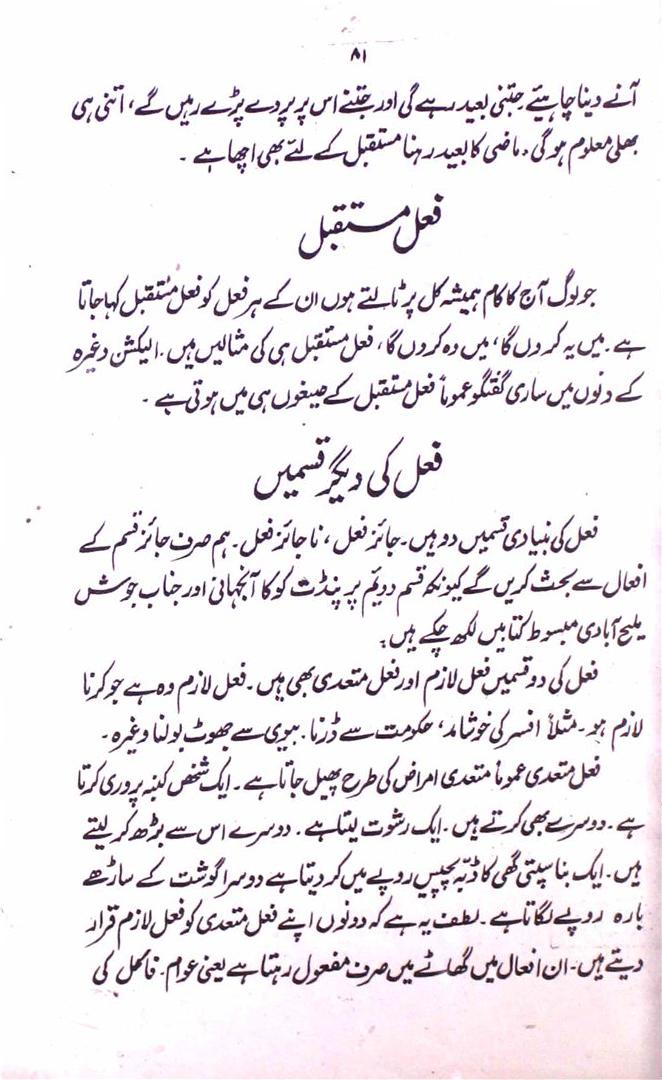 ۸۱
آنے دینا چاہیئے جتنی بعید رہے گی اور جتنے اس پر پردے پڑے رہیں گے، اتنی ہی
بھلی معلوم ہوگی۔ ماضی کا بعید رہنا مستقبل کے لئے بھی اچھا ہے ۔
فعل مستقبل
جو لوگ آج کا کام ہمیشہ کل پر ٹالتے ہوں ان کے ہر فعل کو فعل مستقبل کہا جاتا
ہے۔ میں یہ کردوں گا، میں وہ کردوں گا، فعل مستقبل ہی کی مثالیں ہیں۔ الیکشن وغیرہ
کے دنوں میں ساری گفتگو عموماً فعل مستقبل کے صیغوں ہی میں ہوتی ہے ۔
فعل کی دیگر قسمیں
فعل کی بنیادی قسمیں دو ہیں۔ جائز فعل، ناجائز فعل۔ ہم صرف جائز قسم کے
افعال سے بحث کریں گے کیونکہ قسم دوئم پر پنڈت کوکا آنجہانی اور جناب جوش
ملیح آبادی مبسوط کتابیں لکھ چکے ہیں۔
فعل کی دو قسمیں فعل لازم اور فعل متعدی بھی ہیں۔ فعل لازم وہ ہے جو کرنا
لازم ہو۔ مثلاً افسر کی خوشامد، حکومت سے ڈرنا۔ بیوی سے جھوٹ بولنا وغیرہ۔
فعل متعدی عموماً متعدی امراض کی طرح پھیل جاتا ہے۔ ایک شخص کنبہ پروری کرتا
ہے۔ دوسرے بھی کرتے ہیں۔ ایک رشوت لیتا ہے۔ دوسرے اس سے بڑھ کر لیتے
ہیں۔ ایک بناسپتی گھی کا ڈبہ پچیس روپے میں کردیتا ہے دوسرا گوشت کے ساڑھے
بارہ روپے لگاتا ہے۔ لطف یہ ہے کہ دونوں اپنے فعل متعدی کو فعل لازم قرار
دیتے ہیں۔ ان افعال میں گھاٹے میں صرف مفعول رہتا ہے یعنی عوام۔ فاعل کی